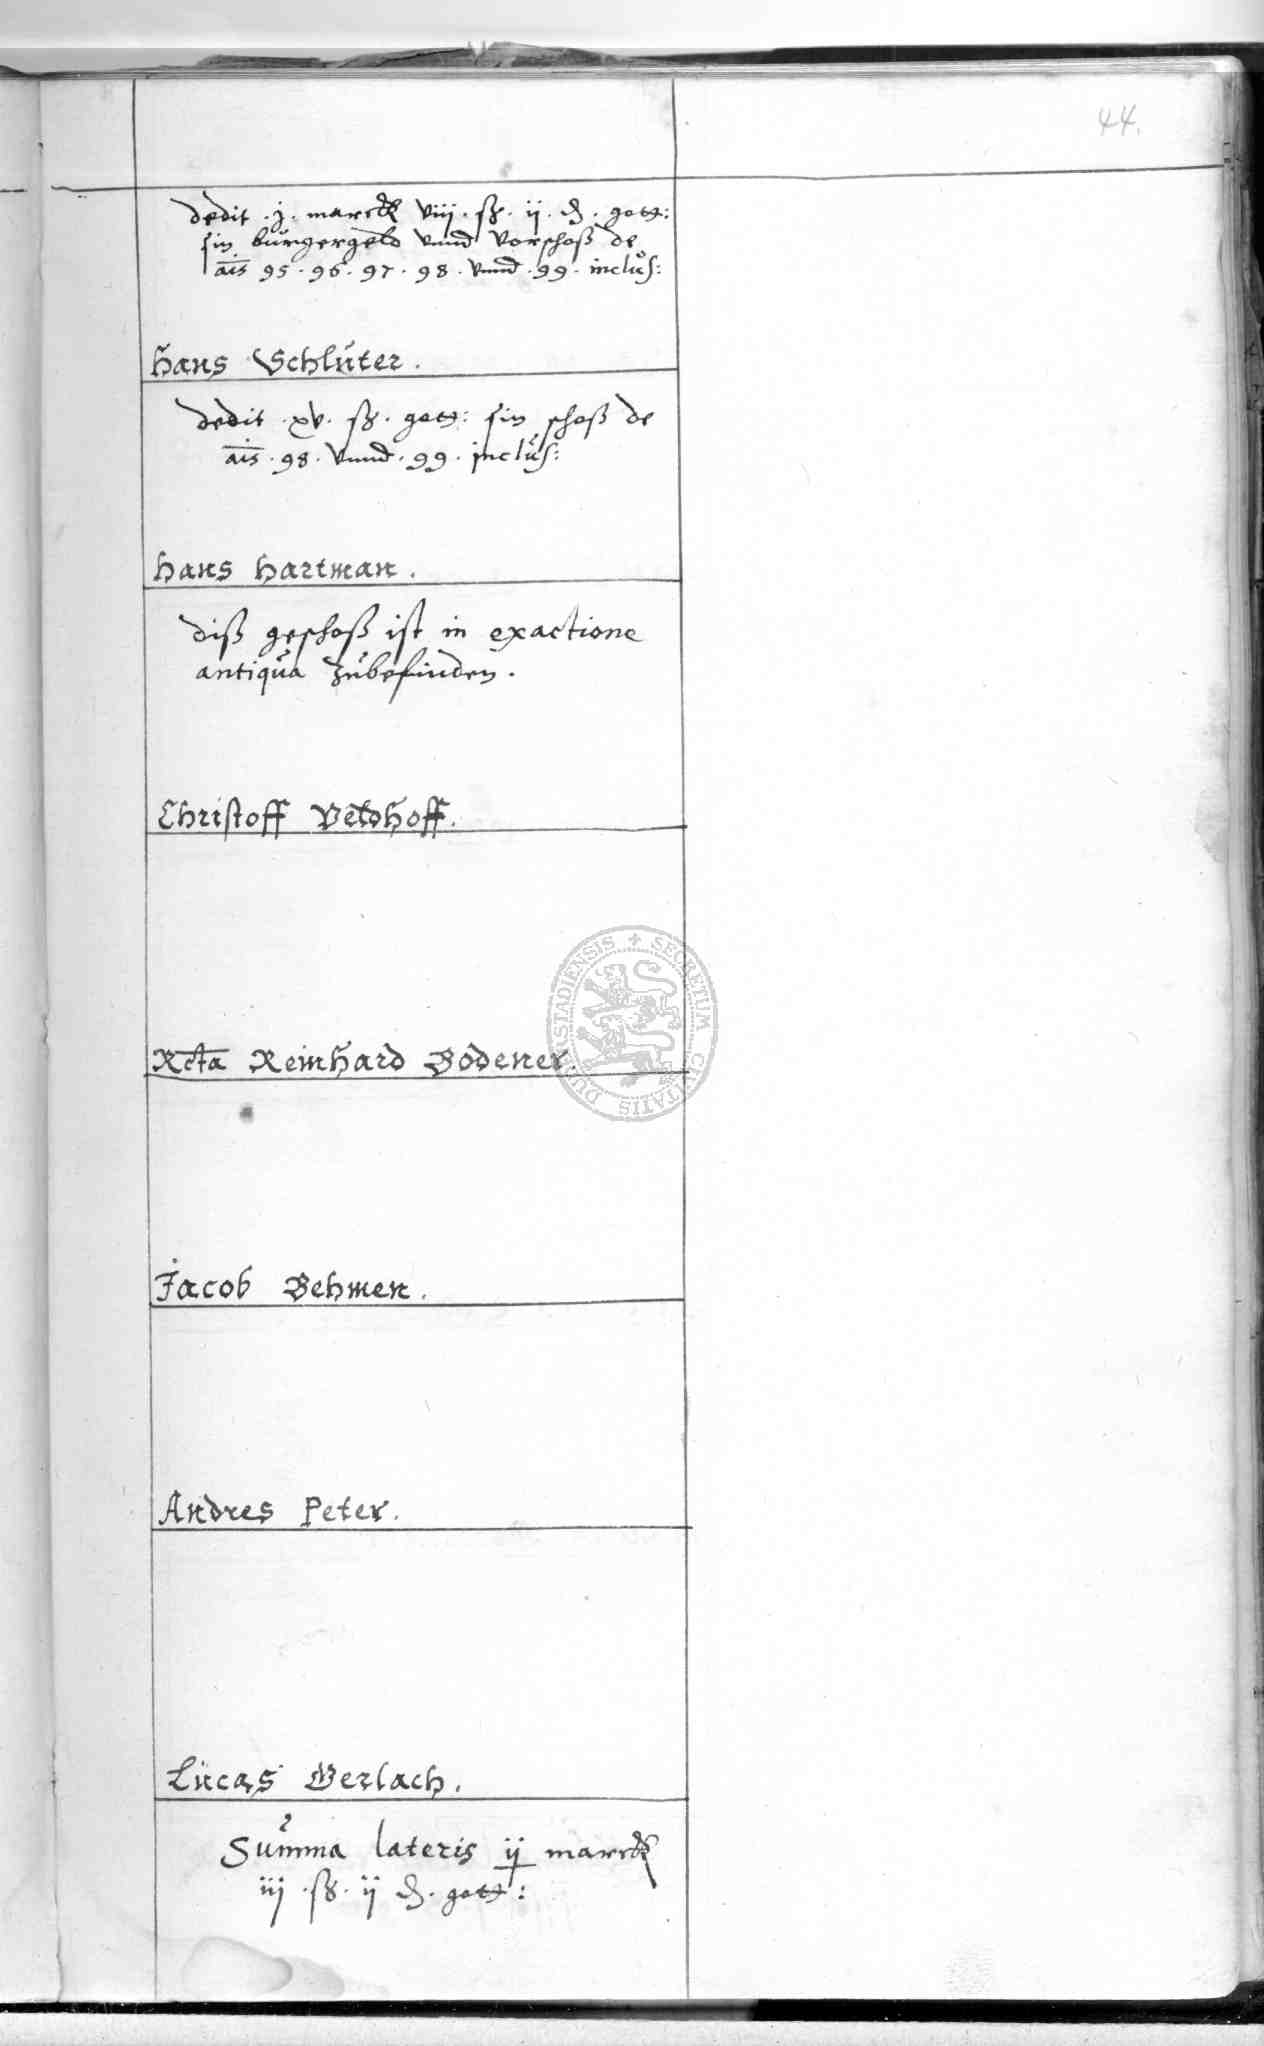 44.
dedit .j. marck viij . ß . ij . d . gott:
sin burgergeld vnnd vorschoß de
ais 95 . 96 . 97 . 98 . vnnd . 99 . inclus:
Hans Schluter .
dedit . xv . ß . gott: sin schoß de
ais . 98 . vnnd . 99 . inclus:
Hans Hartman .
diß geschoß ist in exactione
antiqua zubefinden .
Christoff Veldhoff .
Rcta Reinhard Bodener .
Jacob Behmen .
Andres Peter .
Lucas Gerlach .
Summa lateris ij marck
iij . ß . ij d . gott :
SECRETUM CIVITATIS DUDERSTADIENSIS